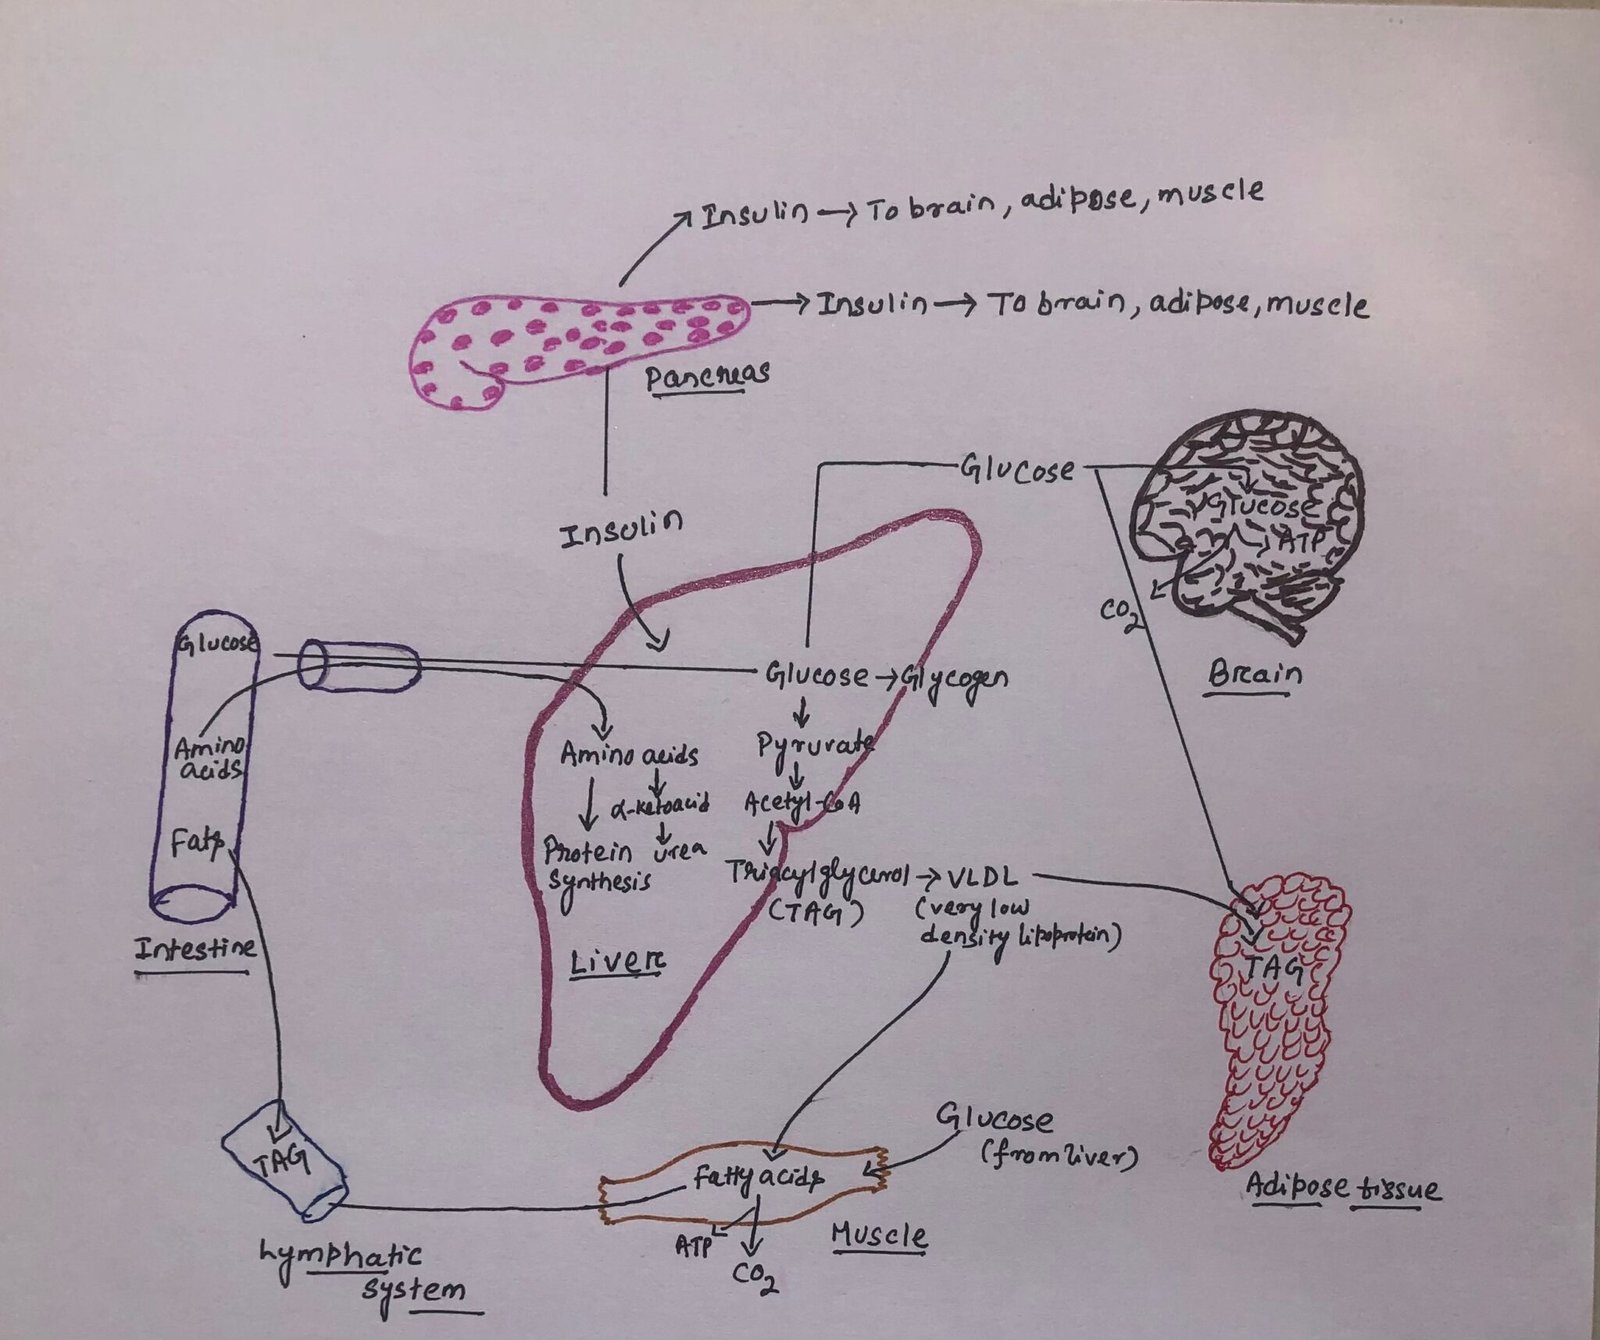 Insulin → To brain, adipose, muscle
→ Insulin → To brain, adipose, muscle
Pancreas
Insulin
Glucose
Glucose
ATP
CO2
Brain
Glucose
Amino
acids
Fats
Intestine
Glucose → Glycogen
Pyruvate
Acetyl-CoA
Triacylglycerol → VLDL
(TAG)
(very low
density lipoprotein)
Amino acids
α-ketoacid
urea
Protein
Synthesis
Liver
TAG
Adipose tissue
TAG
Lymphatic
system
Glucose
(from liver)
Fatty acids
ATP
CO2
Muscle